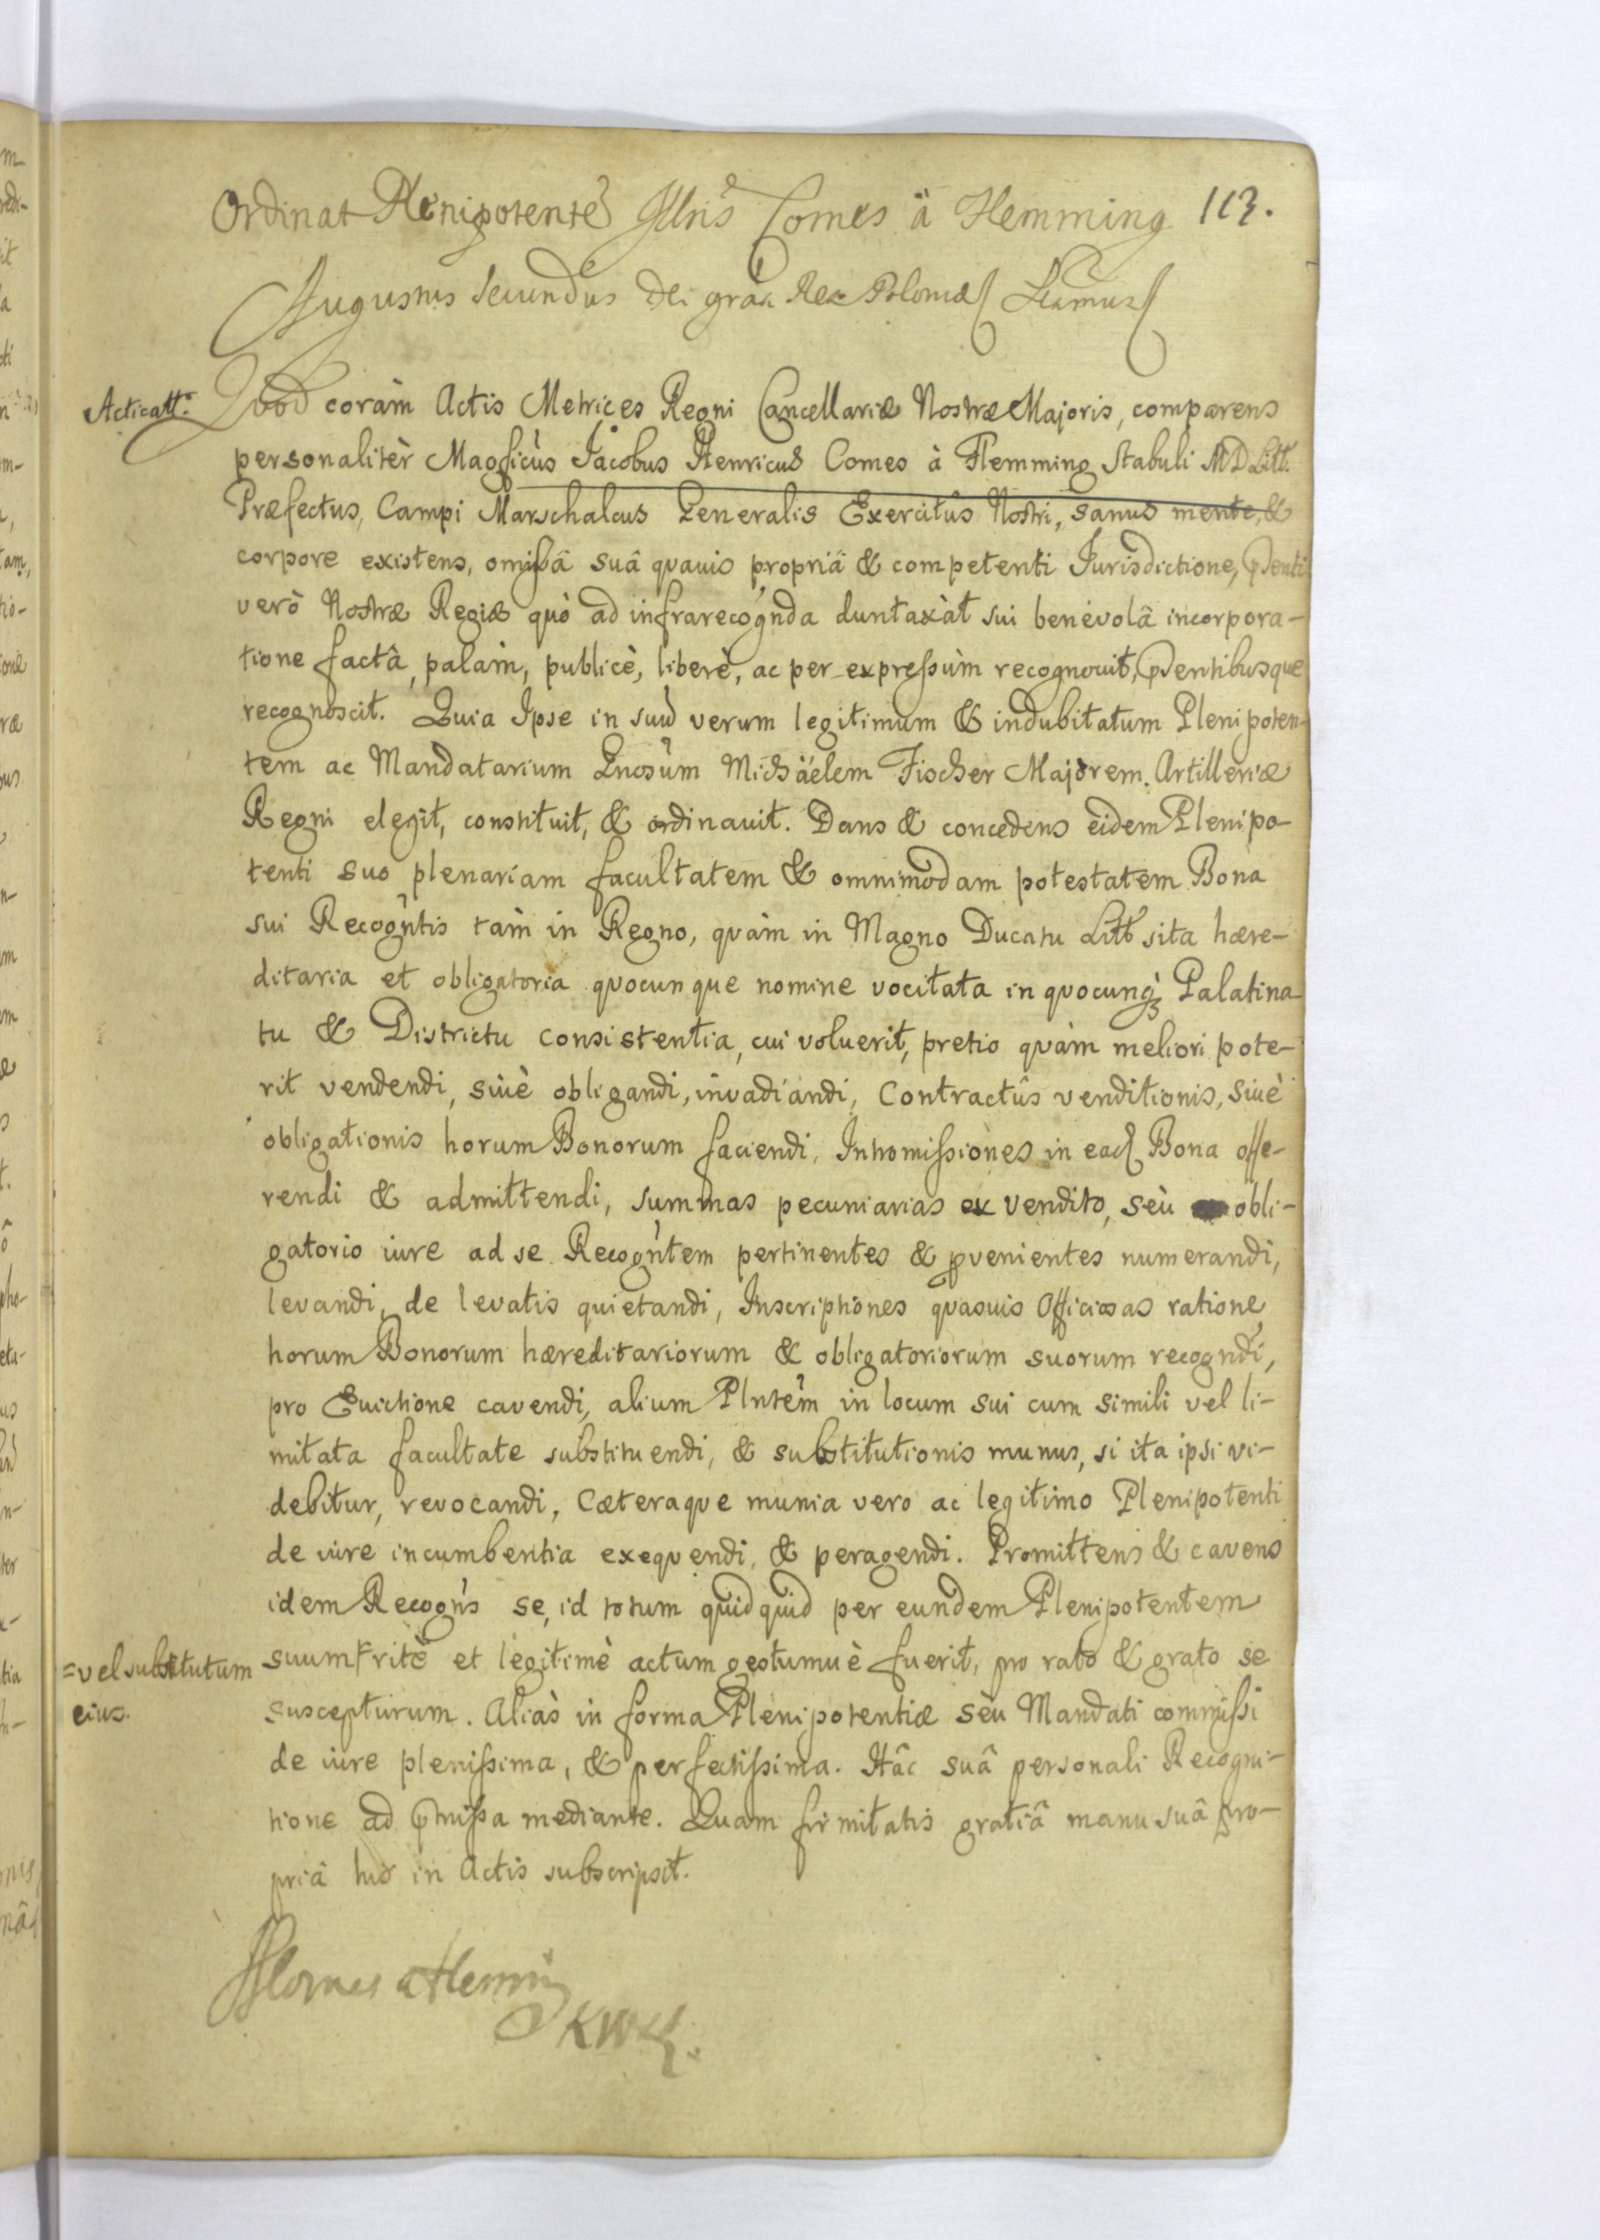 Ordinat Plenipotente Illris Comes à Flemming 113.
Augustus Secundus Dei gràa Rex Poloniæ
Acticatt.
Qvod coràm Actis Metrices Regni Cancellariæ Nostræ Majoris, comparens
personalitèr Magficùs Jacobus Henricus Comes à Flemming Stabuli M D Litt.
Præfectus, Campi Marschalcus Generalis Exercitus Nostri, sanus mente, &
corpore existens, omissâ suâ quavis propriâ & competenti Jurisdictione, pnti
verò Nostræ Regiæ quò ad infrarecognda duntaxàt sui benevolâ incorpora-
tione factâ, palàm, publicè, liberè, ac per expressùm recognovit, pntibusque
recognoscit. Quia Ipse in suũ verum legitimum & indubitatum Plenipoten-
tem ac Mandatarium Gnosùm Michäelem Fischer Majorem Artilleriæ
Regni elegit, constituit, & ordinavit. Dans & concedens eidem Plenipo-
tenti suo plenariam facultatem & omnimodam potestatem Bona
sui Recogntis tàm in Regno, quàm in Magno Ducatu Litt sita hære-
ditaria et obligatoria quocunque nomine vocitata in quocunq Palatina-
tu & Districtu consistentia, cui voluerit, pretio quàm meliori pote-
rit vendendi, sivè obligandi, invadiandi, Contractûs venditionis, sivè
obligationis horum Bonorum faciendi, Intromissiones in ead Bona offe-
rendi & admittendi, summas pecuniarias ex vendito, seù obli-
gatorio iure ad se Recogntem pertinentes & pvenientes numerandi,
levandi, de levatis quietandi, Inscriptiones quasvis Officiosas ratione
horum Bonorum hæreditariorum & obligatoriorum suorum recogndi,
pro Evictione cavendi, alium Plntêm in locum sui cum simili vel li-
mitata facultate substituendi, & substitutionis munus, si ita ipsi vi-
debitur, revocandi, Cæteraque munia vero ac legitimo Plenipotenti
de iure incumbentia exequendi, & peragendi. Promittens & cavens
idem Recogns se, id totum quidquid per eundem Plenipotentem
=vel substitutum
eius.
suum ritè et legitimè actum gestumvè fuerit, pro rato & grato se
suscepturum. Aliàs in forma Plenipotentiæ seù Mandati commissi
de iure plenissima, & perfectissima. Hâc suâ personali Recogni-
tione ad pmissa mediante. Quam firmitatis gratiâ manu suâ pro-
priâ hic in Actis subscripsit.